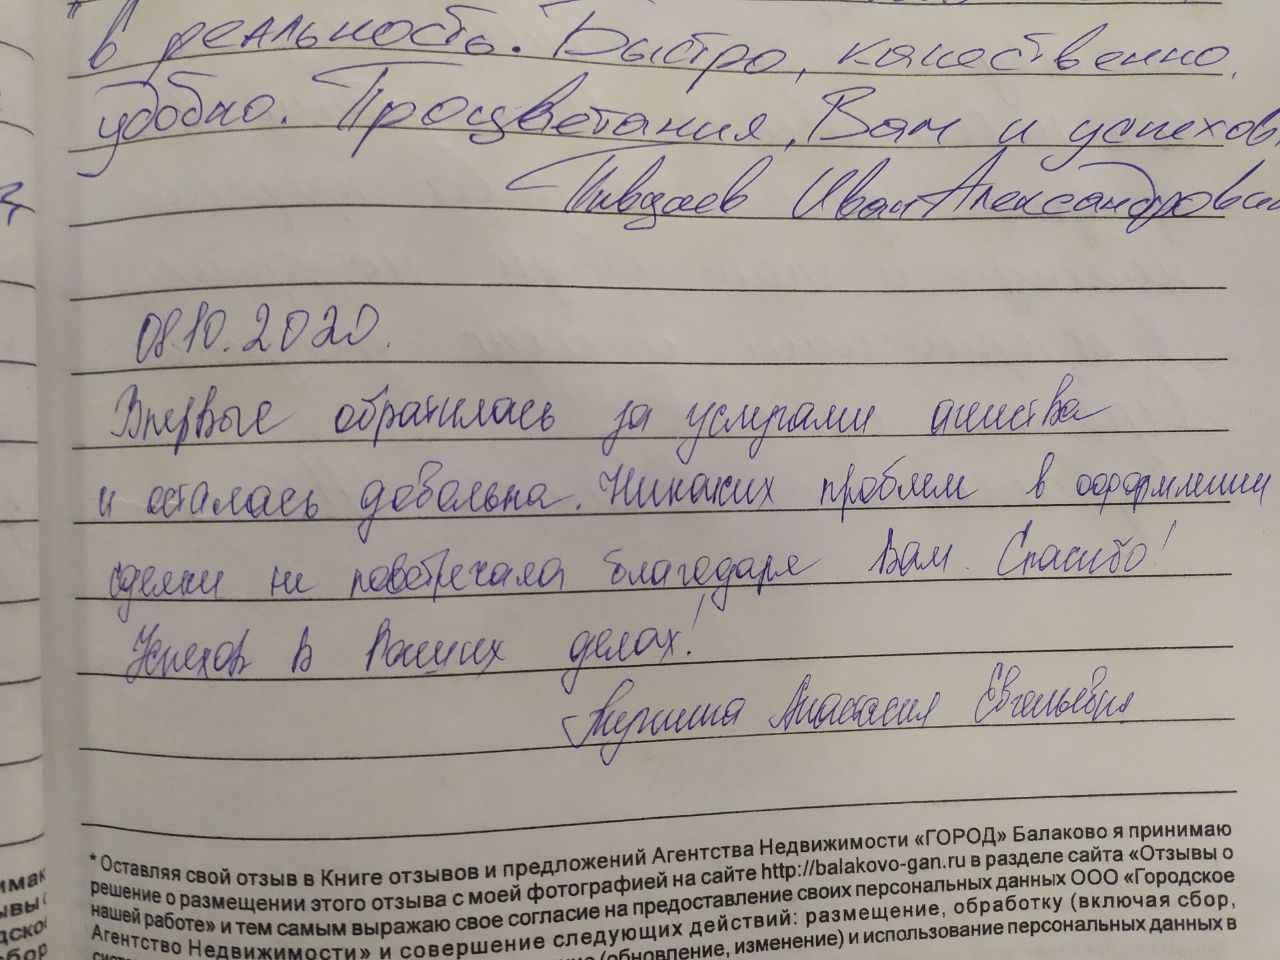 в реальность. Быстро, качественно,
удобно. Процветания, Вам и успехов.
Иван Александрович
08.10.2020.
Впервые обратилась за услугами агенства
и осталась довольна. Никаких проблем в оформлении
сделки не повстречала благодаря Вам. Спасибо!
Успехов в Ваших делах!
Анастасия Евгеньевна
* Оставляя свой отзыв в Книге отзывов и предложений Агентства Недвижимости «ГОРОД» Балаково я принимаю
решение о размещении этого отзыва с моей фотографией на сайте http://balakovo-gan.ru в разделе сайта «Отзывы о
нашей работе» и тем самым выражаю свое согласие на предоставление своих персональных данных ООО «Городское
Агентство Недвижимости» и совершение следующих действий: размещение, обработку (включая сбор,
(обновление, изменение) и использование персональных данных в